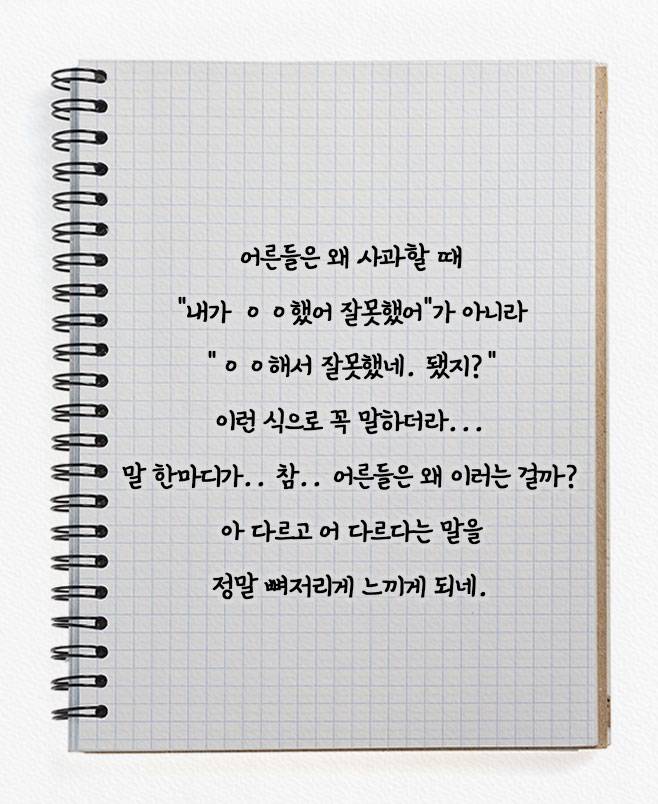 어른들은 왜 사과할 때
"내가 ㅇㅇ했어 잘못했어"가 아니라
"ㅇㅇ해서 잘못했네. 됐지?"
이런 식으로 꼭 말하더라...
말 한마디가.. 참.. 어른들은 왜 이러는 걸까?
아 다르고 어 다르다는 말을
정말 뼈저리게 느끼게 되네.